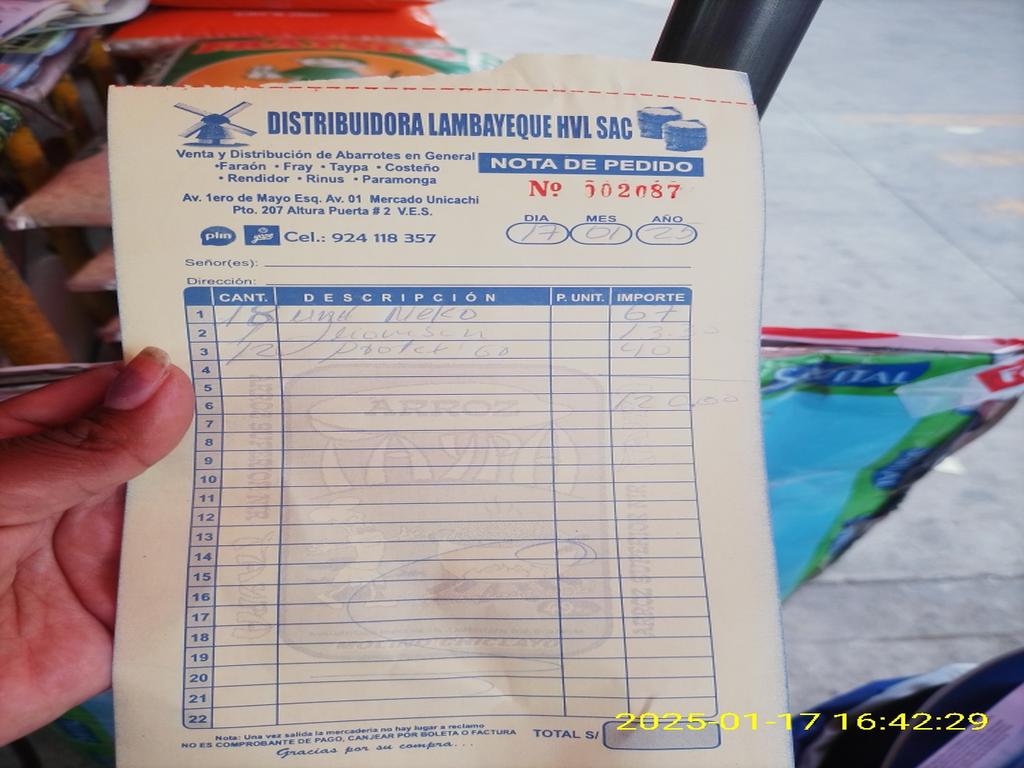 DISTRIBUIDORA LAMBAYEQUE HVL SAC
Venta y Distribución de Abarrotes en General
•Faraón • Fray • Taypa • Costeño
• Rendidor • Rinus • Paramonga
NOTA DE PEDIDO
Nº 002087
Av. 1ero de Mayo Esq. Av. 01 Mercado Unicachi
Pto. 207 Altura Puerta # 2 V.E.S.
plin Cel.: 924 118 357
DIA MES AÑO
17 01 25
Señor(es):
Dirección:
CANT. DESCRIPCIÓN P. UNIT. IMPORTE
1 18 und Neko 67
2 13.
3 12 protex 60 40
4
5
6 120.00
7
8
9
10
11
12
13
14
15
16
17
18
19
20
21
22
ARROZ
MOLINO CHICLAYO
Nota: Una vez salida la mercadería no hay lugar a reclamo
NO ES COMPROBANTE DE PAGO, CANJEAR POR BOLETA O FACTURA
Gracias por su compra...
TOTAL S/
2025-01-17 16:42:29